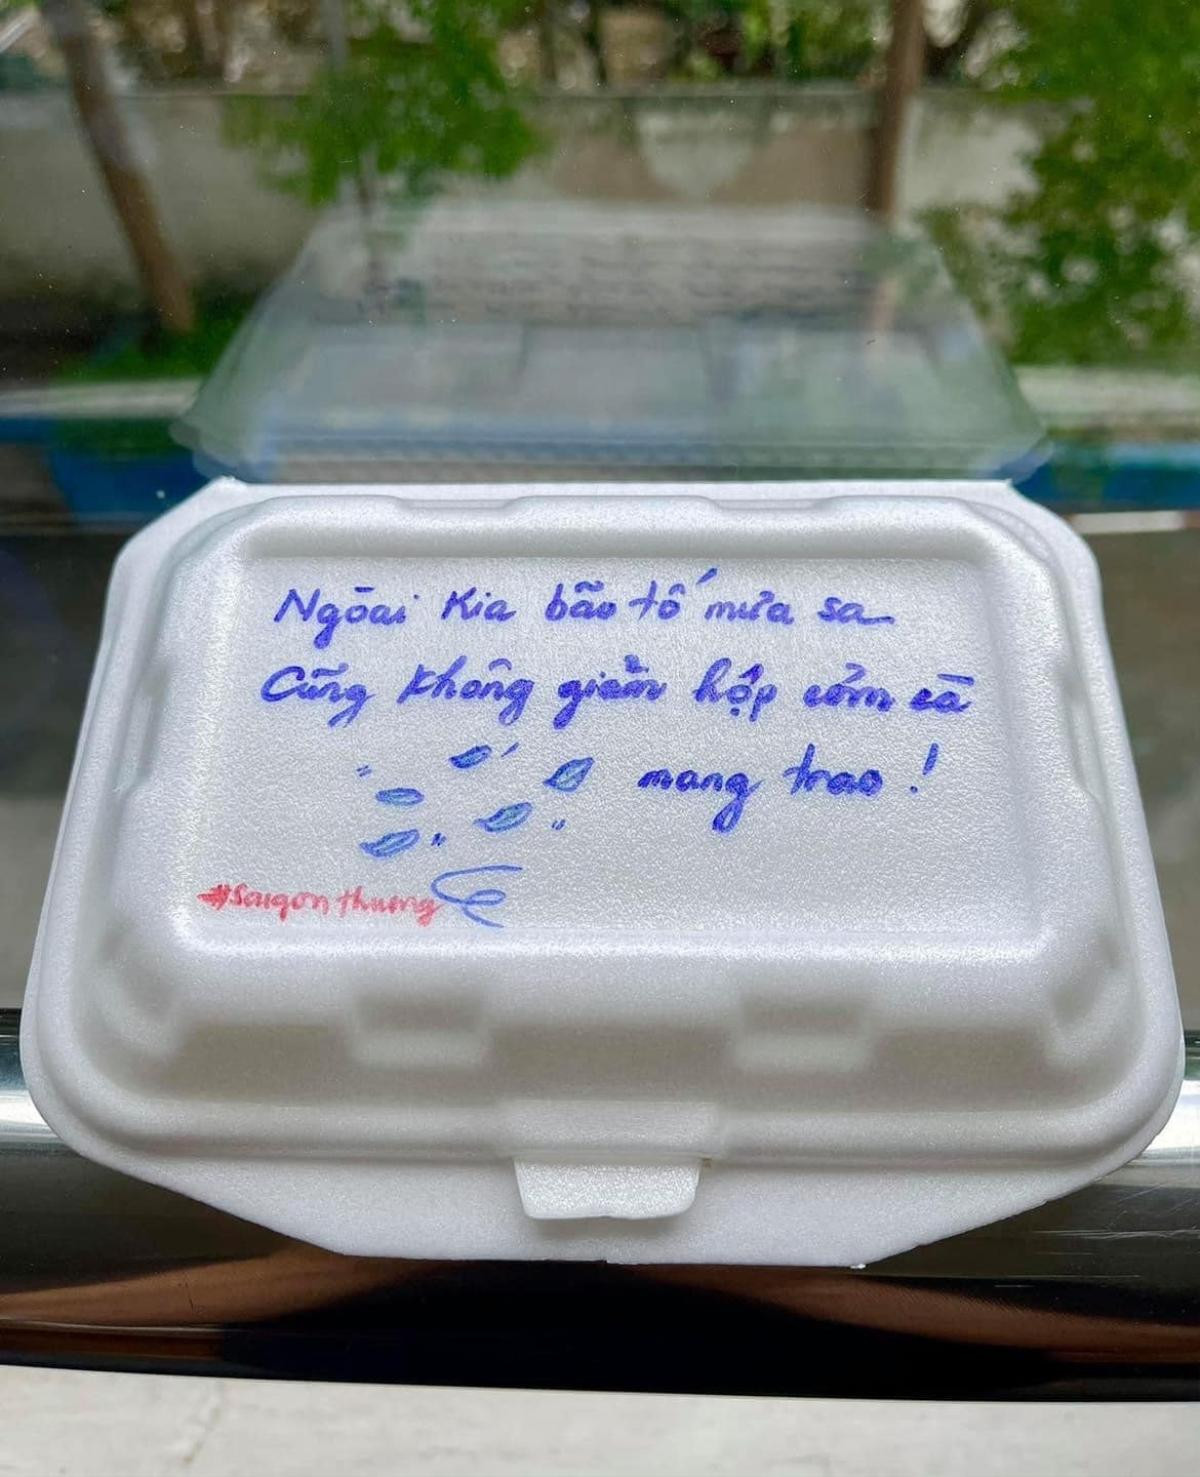 Ngoài kia bão tố mưa sa
Cũng không giảm hộp cơm cà
mang trao !
#Saigonthương